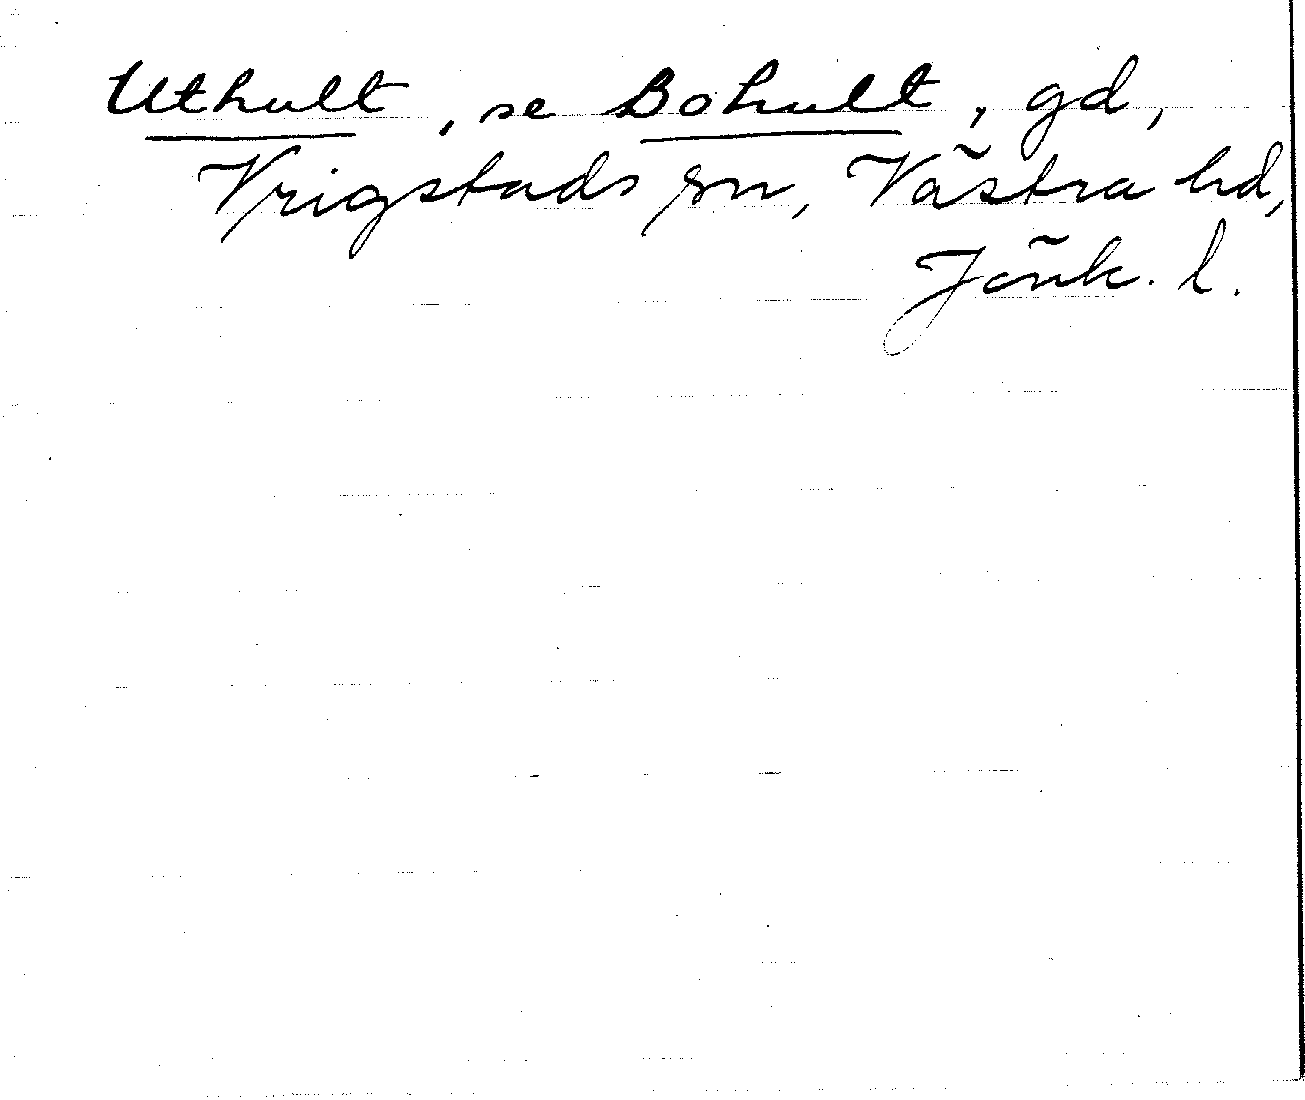 Uthult, se Bohult, gd,
Vrigstads sn, Västra hd,
Jönk. l.